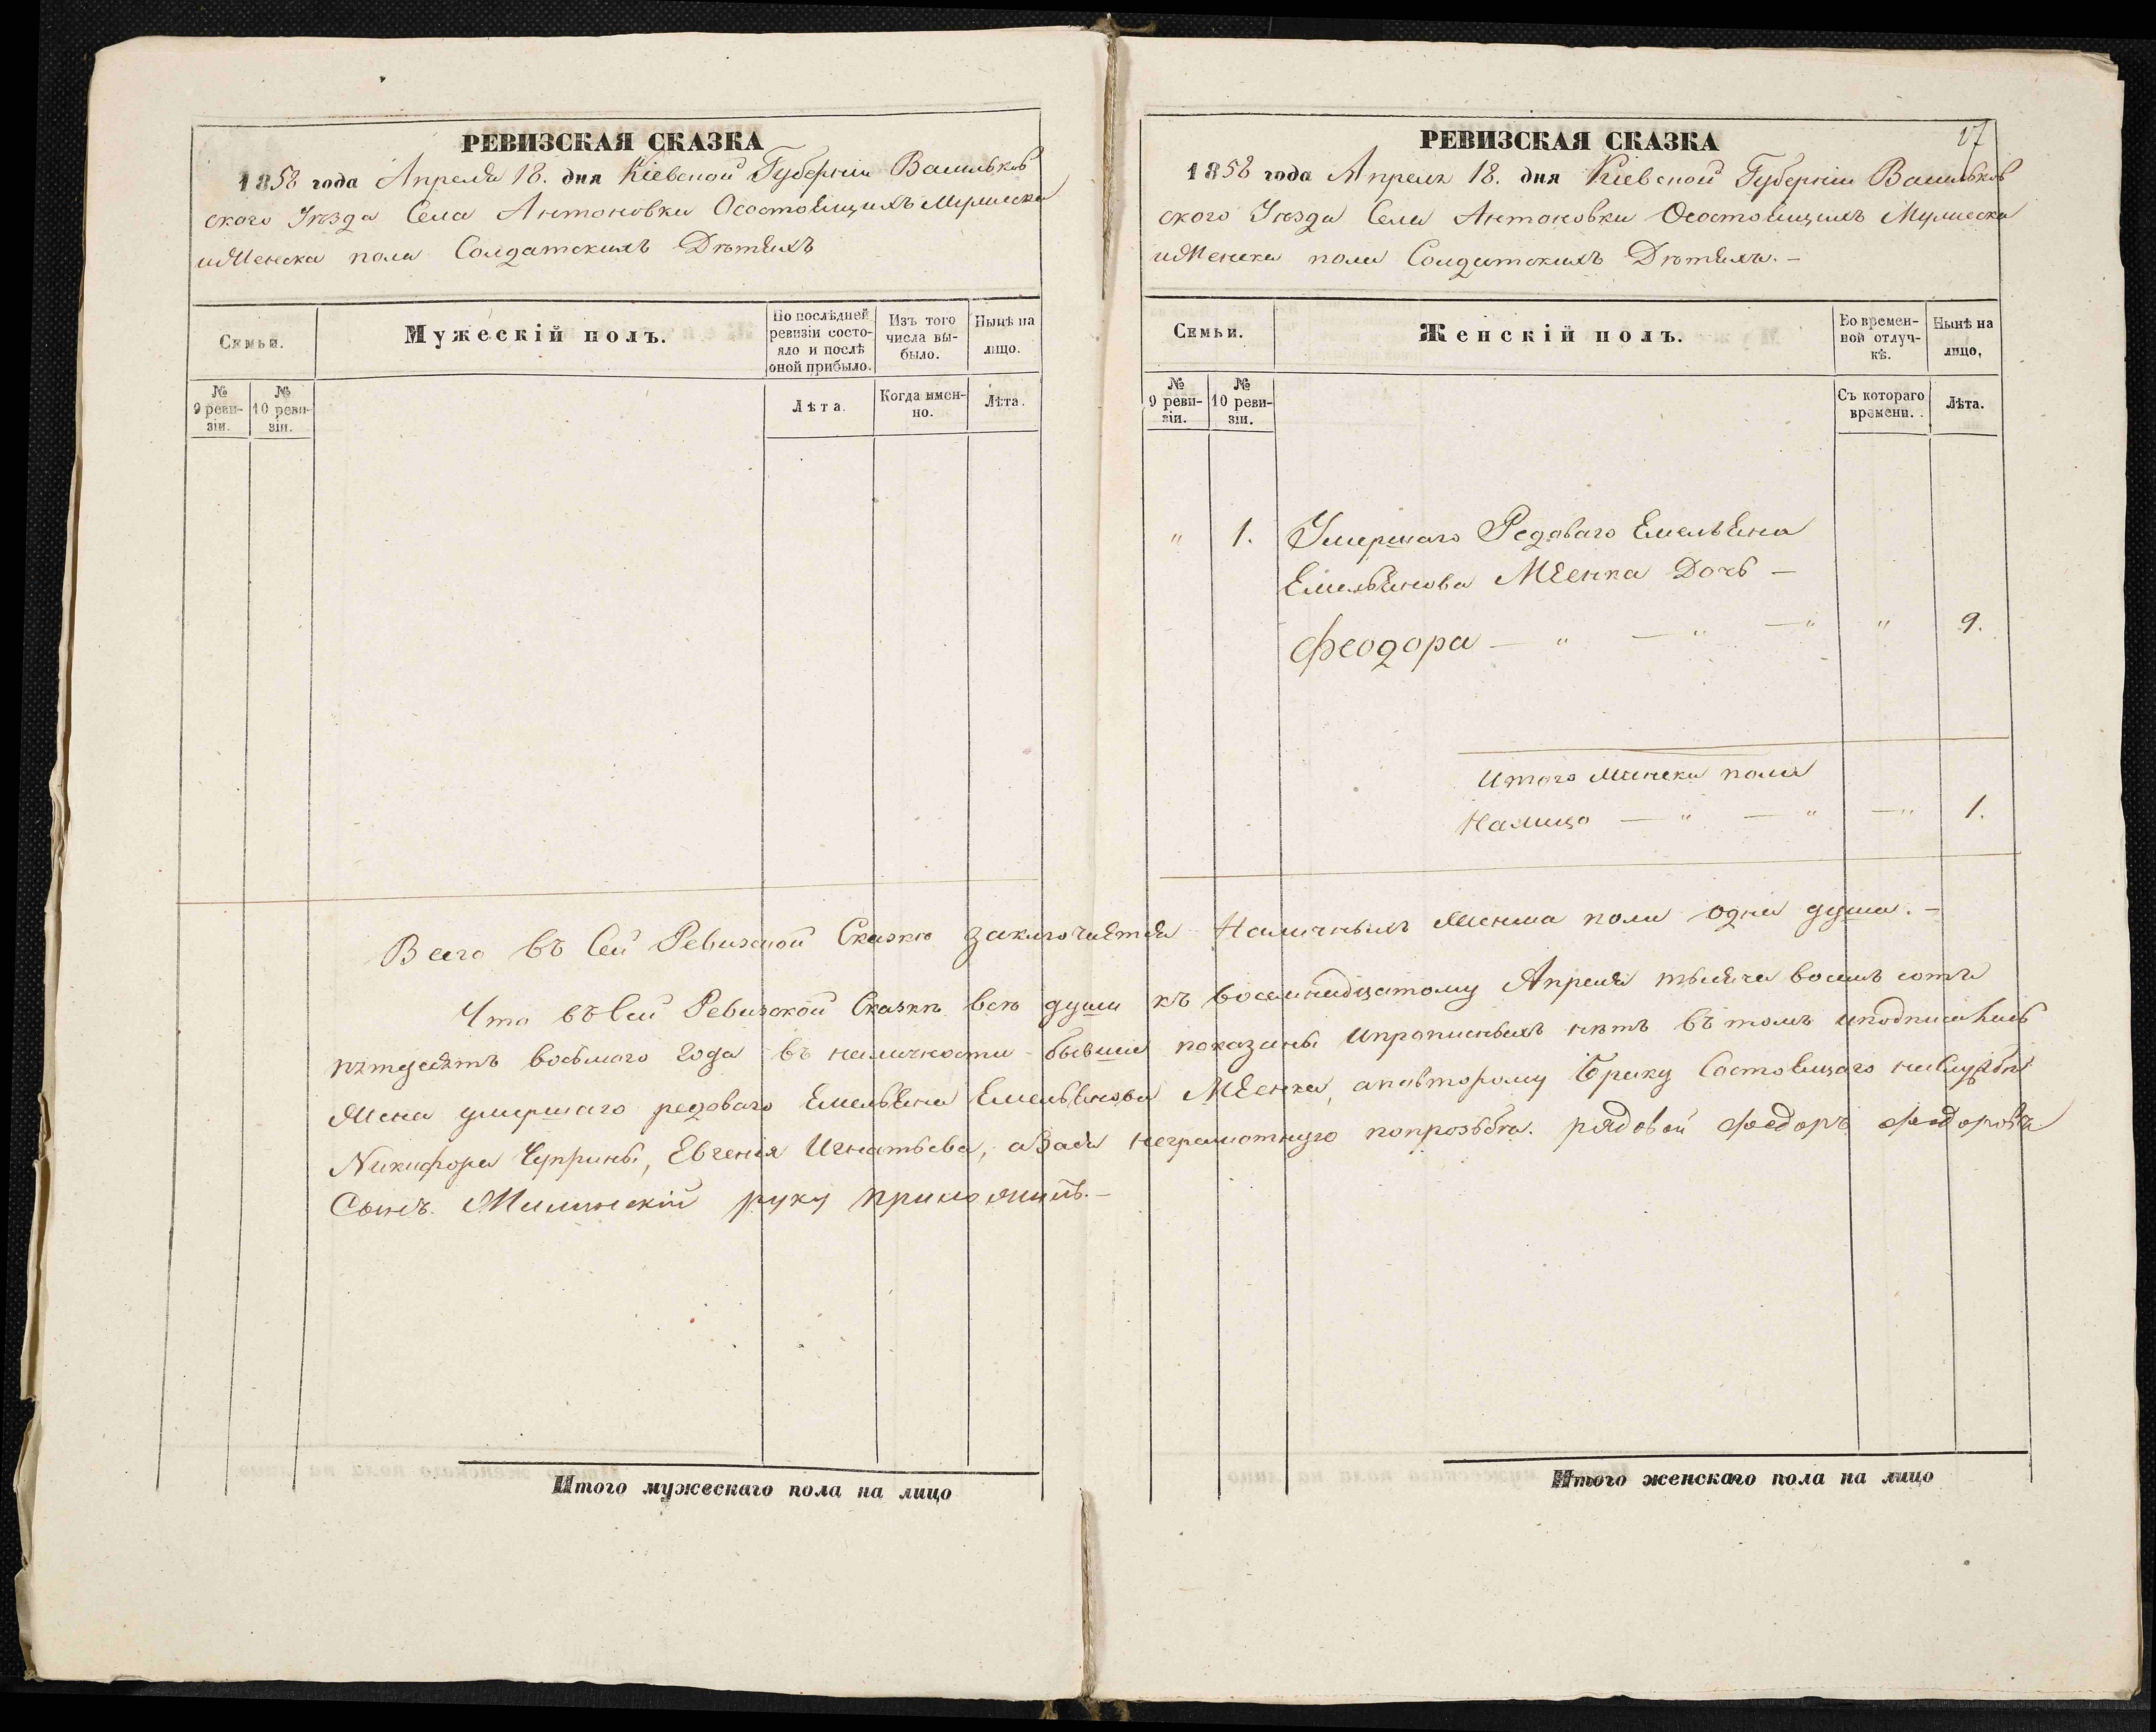 РЕВИЗСКАЯ СКАЗКА
1858 года Апреля 18. дня Кіевской Губерніи Васильков
ского Уѣзда Села Антоновки Осостоящихъ Мужеска
иЖенска пола Солдатскихъ Дѣтяхъ
Семьи.
Мужескій полъ.
По послѣдней ревизіи состояло и послѣ оной прибыло.
Изъ того числа выбыло.
Нынѣ на лицо.
№ 9 ревизіи.
№ 10 ревизіи.
Лѣта.
Когда именно.
Лѣта.
Итого мужескаго пола на лицо
27
РЕВИЗСКАЯ СКАЗКА
1858 года Апреля 18. дня Кіевской Губерніи Васильков
ского Уѣзда Села Антоновки Осостоящихъ Мужеска
иЖенска пола Солдатскихъ Дѣтяхъ. —
Семьи.
Женскій полъ.
Во временной отлучкѣ.
Нынѣ на лицо,
№ 9 ревизіи.
№ 10 ревизіи.
Съ котораго времени.
Лѣта.
" 1. Умершаго Редоваго Емельяна
Емельянова Дочь —
Феодора — " — " — " " 9.
Итого Женска пола
Налицо — " — " — " 1.
Всего въ Сей Ревизской Сказкѣ заключается Наличныхъ Женска пола одна душа. —
Что въ Сей Ревизской Сказкѣ всѣ души къ восемнадцатому Апреля тысяча восемь сотъ
пятдесятъ восьмого года въ наличности бывшіе показаны ипрописныхъ нѣтъ въ томъ иподписались
Жена умершаго редоваго Емельяна Емельянова аповторому браку Состоящаго наСлужбѣ
Никифора Чуприны, Евгенія Игнатьева, азаея неграмотную попрозьбѣ. рядовой Федоръ Федоровъ
Сынъ. руку приложилъ. —
Итого женскаго пола на лицо